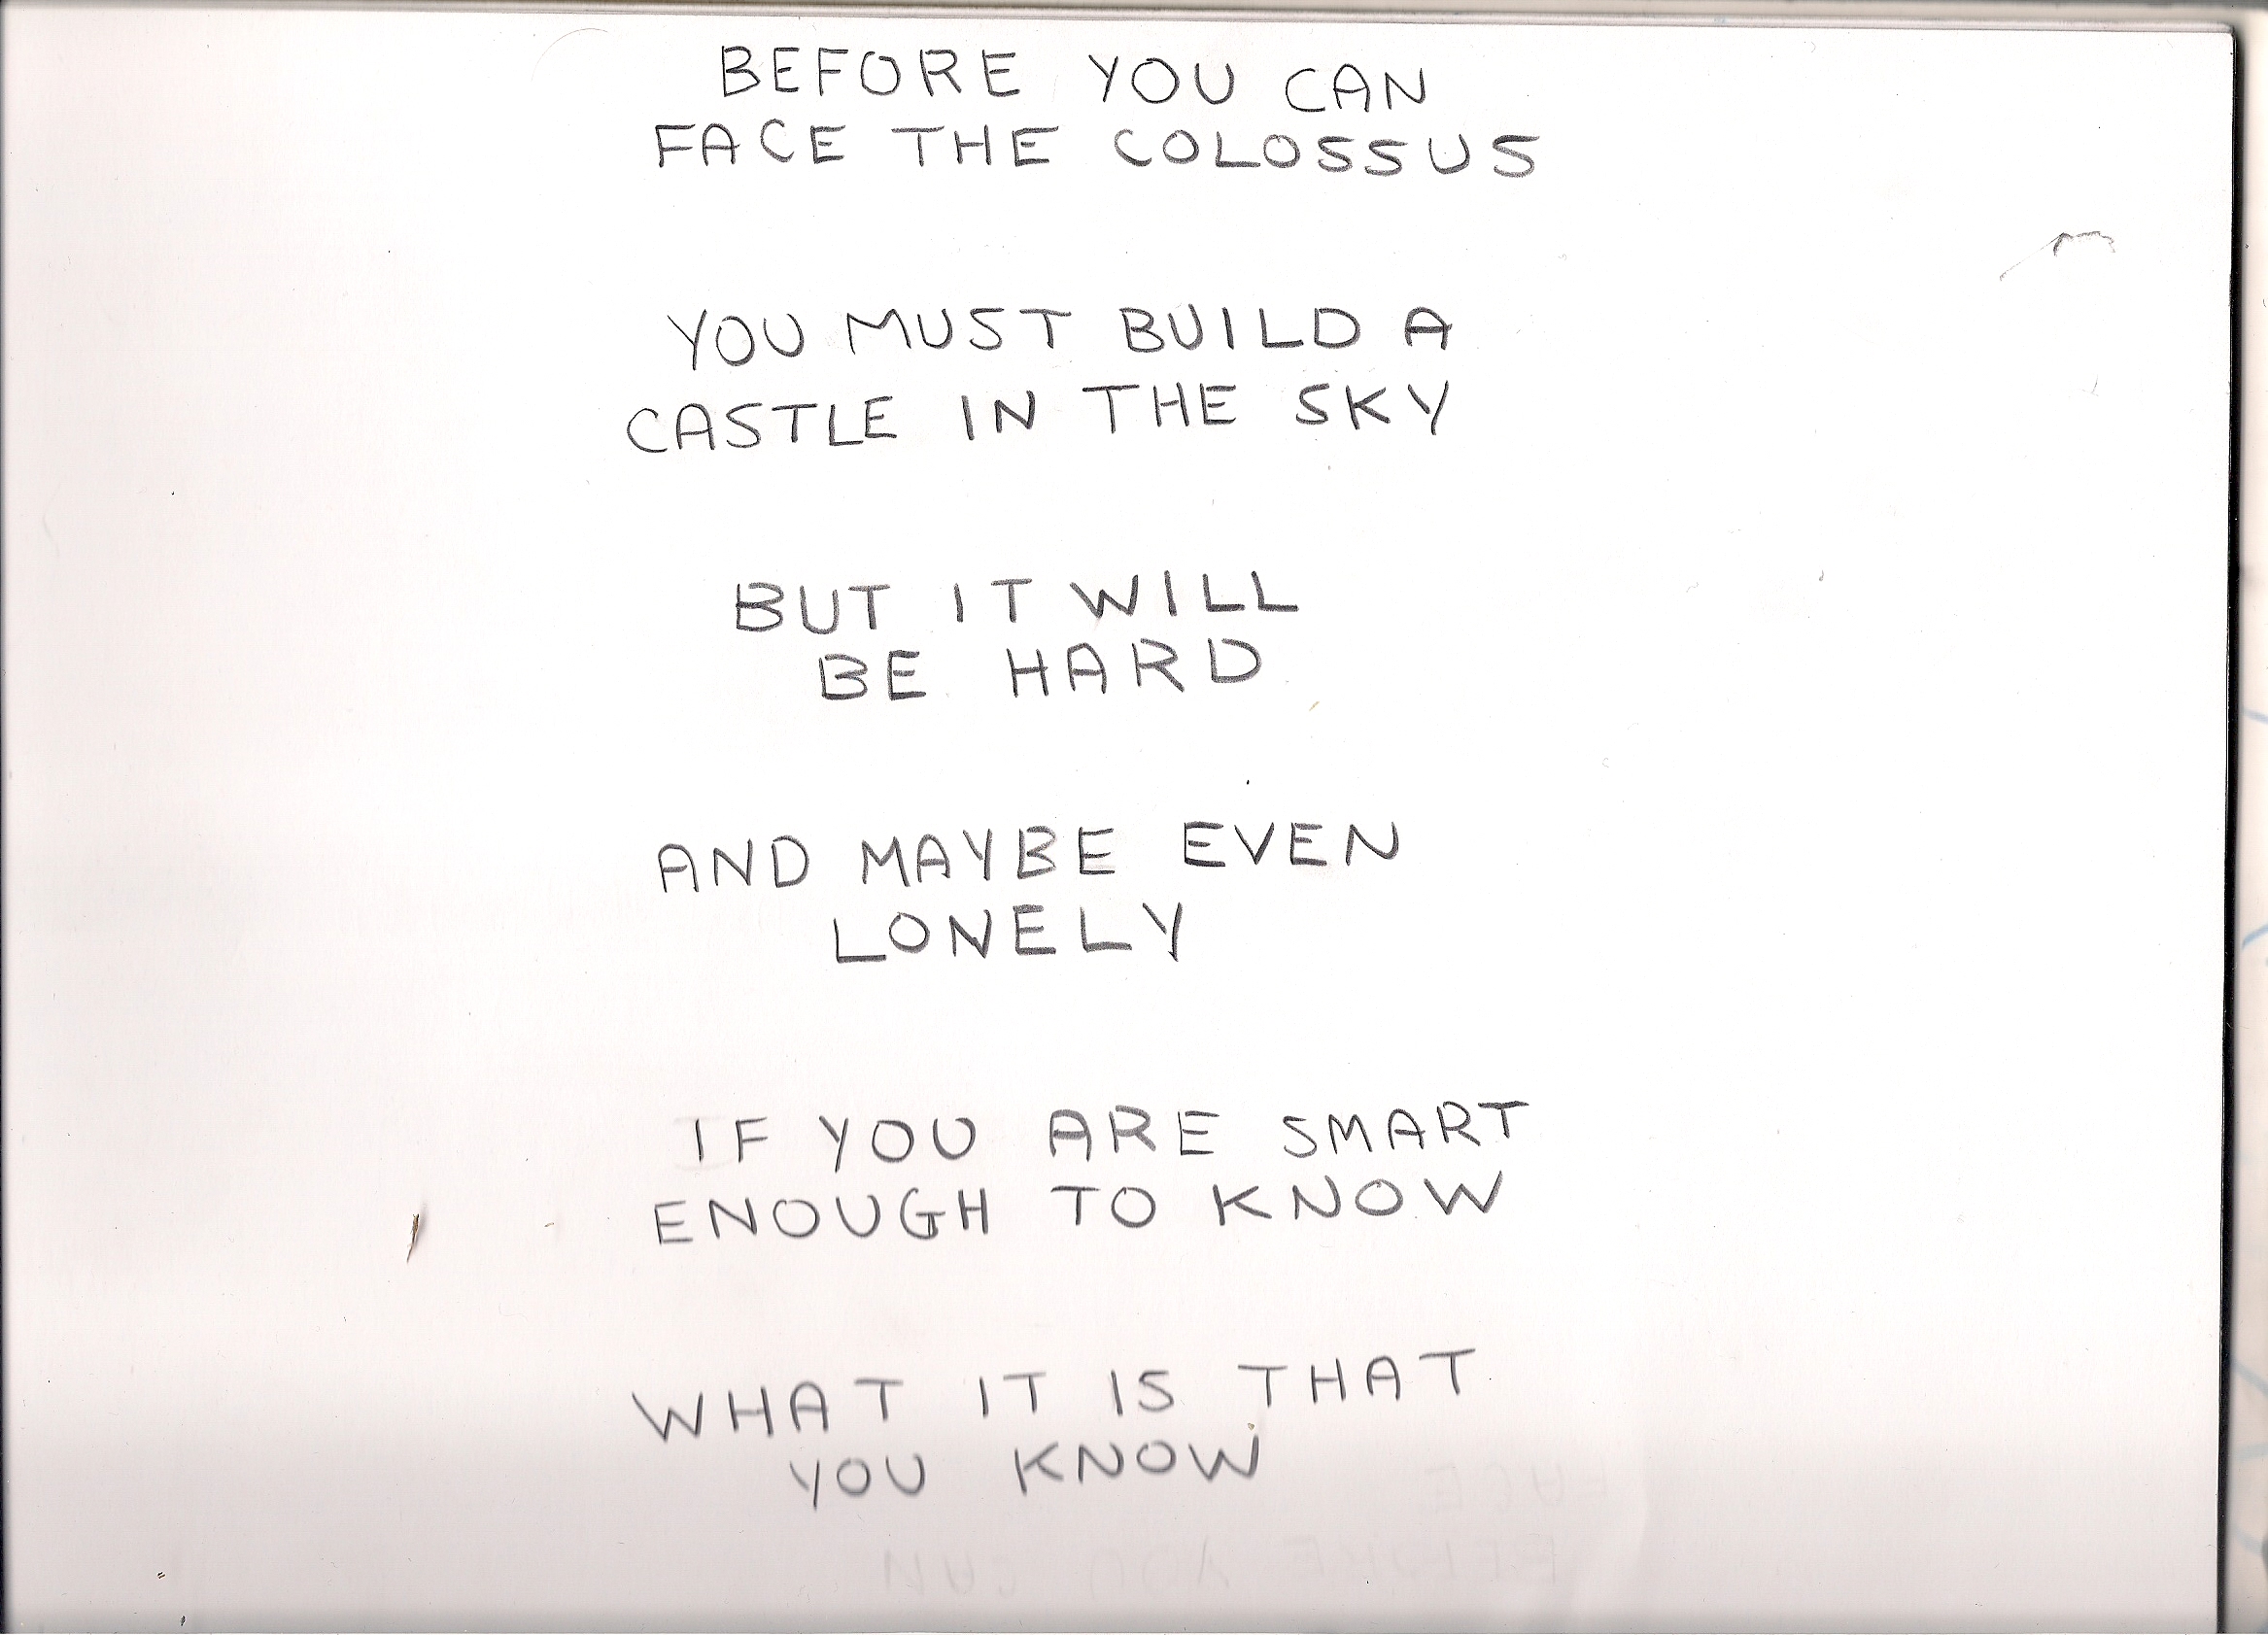 BEFORE YOU CAN
FACE THE COLOSSUS
YOU MUST BUILD A
CASTLE IN THE SKY
BUT IT WILL
BE HARD
AND MAYBE EVEN
LONELY
IF YOU ARE SMART
ENOUGH TO KNOW
WHAT IT IS THAT
YOU KNOW